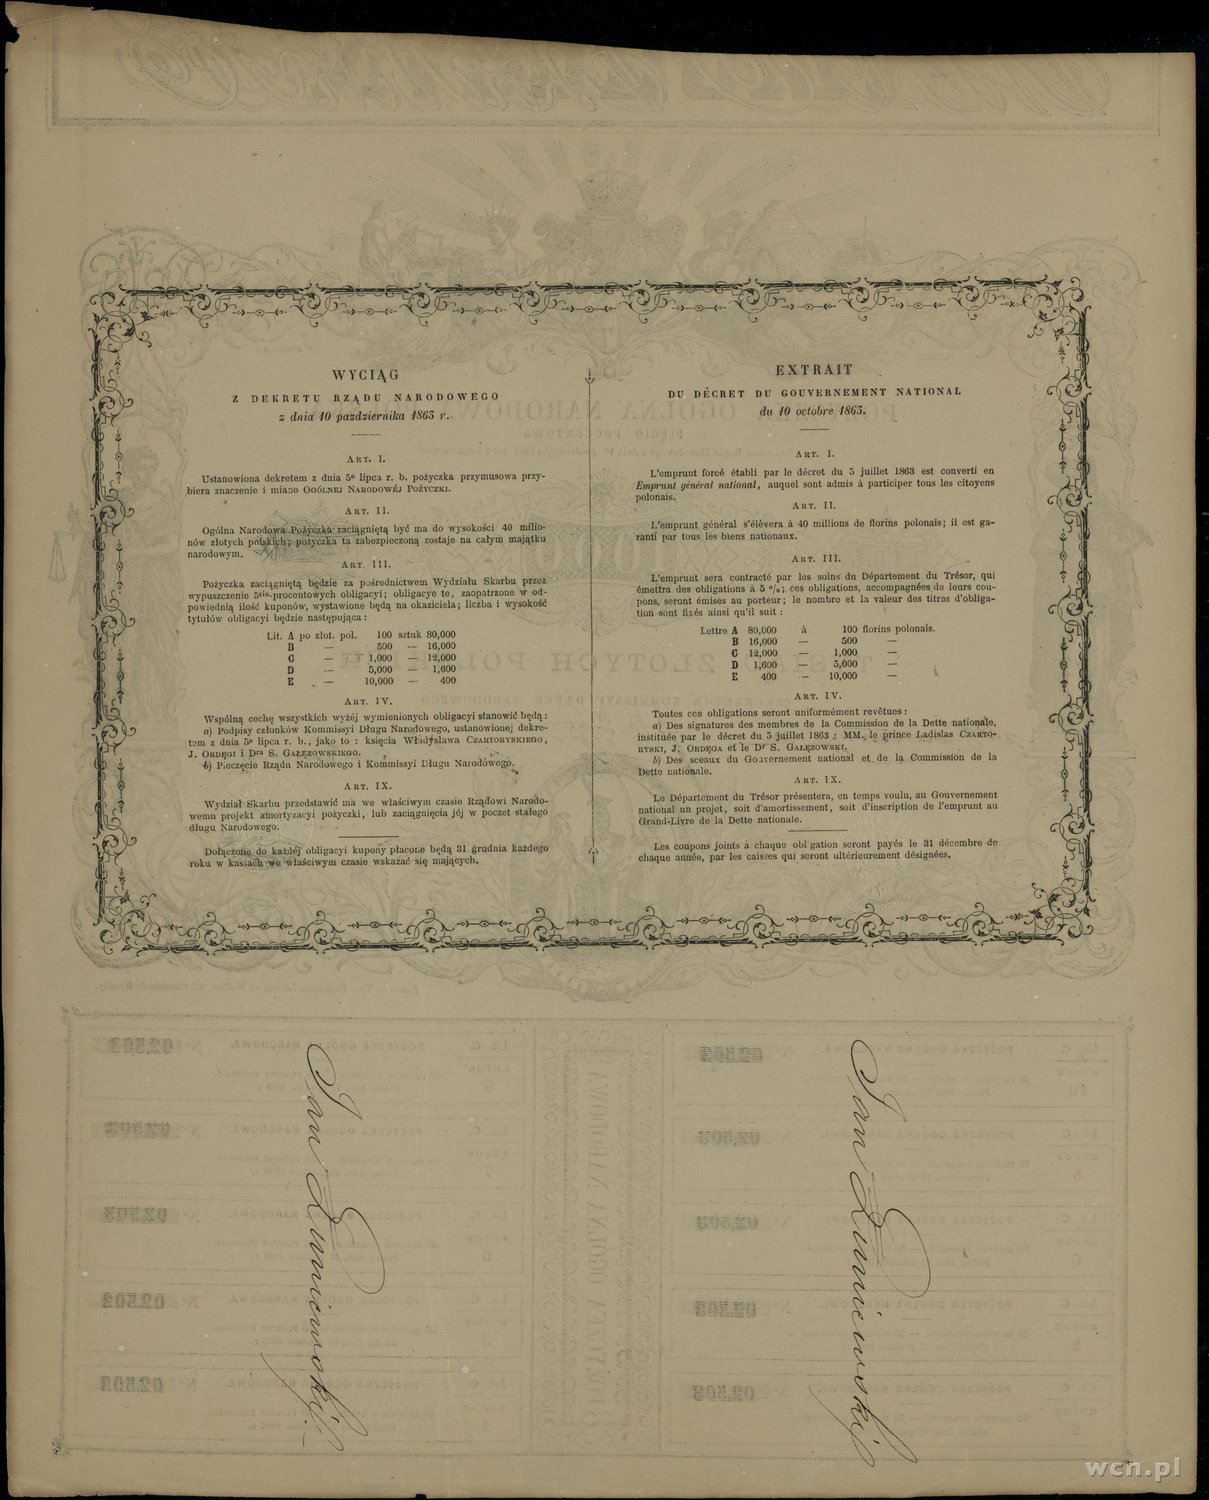 WYCIĄG
Z DEKRETU RZĄDU NARODOWEGO
z dnia 10 pazdziernika 1863 r.
Art. I.
Ustanowiona dekretem z dnia 5º lipca r. b. pożyczka przymusowa przy-
biera znaczenie i miano Ogólnej Narodowéj Pożyczki.
Art. II.
Ogólna Narodowa Pożyczka zaciągniętą być ma do wysokości 40 milio-
nów złotych polskich; pożyczka ta zabezpieczoną zostaje na całym majątku
narodowym.
Art. III.
Pożyczka zaciągniętą będzie za pośrednictwem Wydziału Skarbu przez
wypuszczenie 5cio-procentowych obligacyi; obligacye te, zaopatrzone w od-
powiednią ilość kuponów, wystawione będą na okaziciela; liczba i wysokość
tytułów obligacyi będzie następująca :
Lit. A po złot. pol. 100 sztuk 80,000
B — 500 — 16,000
C — 1,000 — 12,000
D — 5,000 — 1,600
E — 10,000 — 400
Art. IV.
Wspólną cechę wszystkich wyżéj wymienionych obligacyi stanowić będą :
a) Podpisy członków Kommissyi Długu Narodowego, ustanowionej dekre-
tem z dnia 5º lipca r. b., jako to : księcia Władysława Czartoryskiego,
J. Ordęgi i Dra S. Gałęzowskiego.
b) Pieczęcie Rządu Narodowego i Kommissyi Długu Narodowego.
Art. IX.
Wydział Skarbu przedstawić ma we właściwym czasie Rządowi Narodo-
wemu projekt amortyzacyi pożyczki, lub zaciągnięcia jéj w poczet stałego
długu Narodowego.
Dołączone do każdéj obligacyi kupony płacone będą 31 grudnia każdego
roku w kassach we właściwym czasie wskazać się mających.
EXTRAIT
DU DÉCRET DU GOUVERNEMENT NATIONAL
du 10 octobre 1863.
Art. I.
L'emprunt forcé établi par le décret du 5 juillet 1863 est converti en
Emprunt général national, auquel sont admis à participer tous les citoyens
polonais.
Art. II.
L'emprunt général s'élèvera à 40 millions de florins polonais; il est ga-
ranti par tous les biens nationaux.
Art. III.
L'emprunt sera contracté par les soins du Département du Trésor, qui
émettra des obligations à 5 %; ces obligations, accompagnées de leurs cou-
pons, seront émises au porteur; le nombre et la valeur des titres d'obliga-
tion sont fixés ainsi qu'il suit :
Lettre A 80,000 à 100 florins polonais.
B 16,000 — 500 —
C 12,000 — 1,000 —
D 1,600 — 5,000 —
E 400 — 10,000 —
Art. IV.
Toutes ces obligations seront uniformément revêtues :
a) Des signatures des membres de la Commission de la Dette nationale,
instituée par le décret du 5 juillet 1863 : MM. le prince Ladislas Czarto-
ryski, J. Ordęga et le Dr S. Gałęzowski.
b) Des sceaux du Gouvernement national et de la Commission de la
Dette nationale.
Art. IX.
Le Département du Trésor présentera, en temps voulu, au Gouvernement
national un projet, soit d'amortissement, soit d'inscription de l'emprunt au
Grand-Livre de la Dette nationale.
Les coupons joints à chaque obligation seront payés le 31 décembre de
chaque année, par les caisses qui seront ultérieurement désignées.
Jan
Jan
wcn.pl